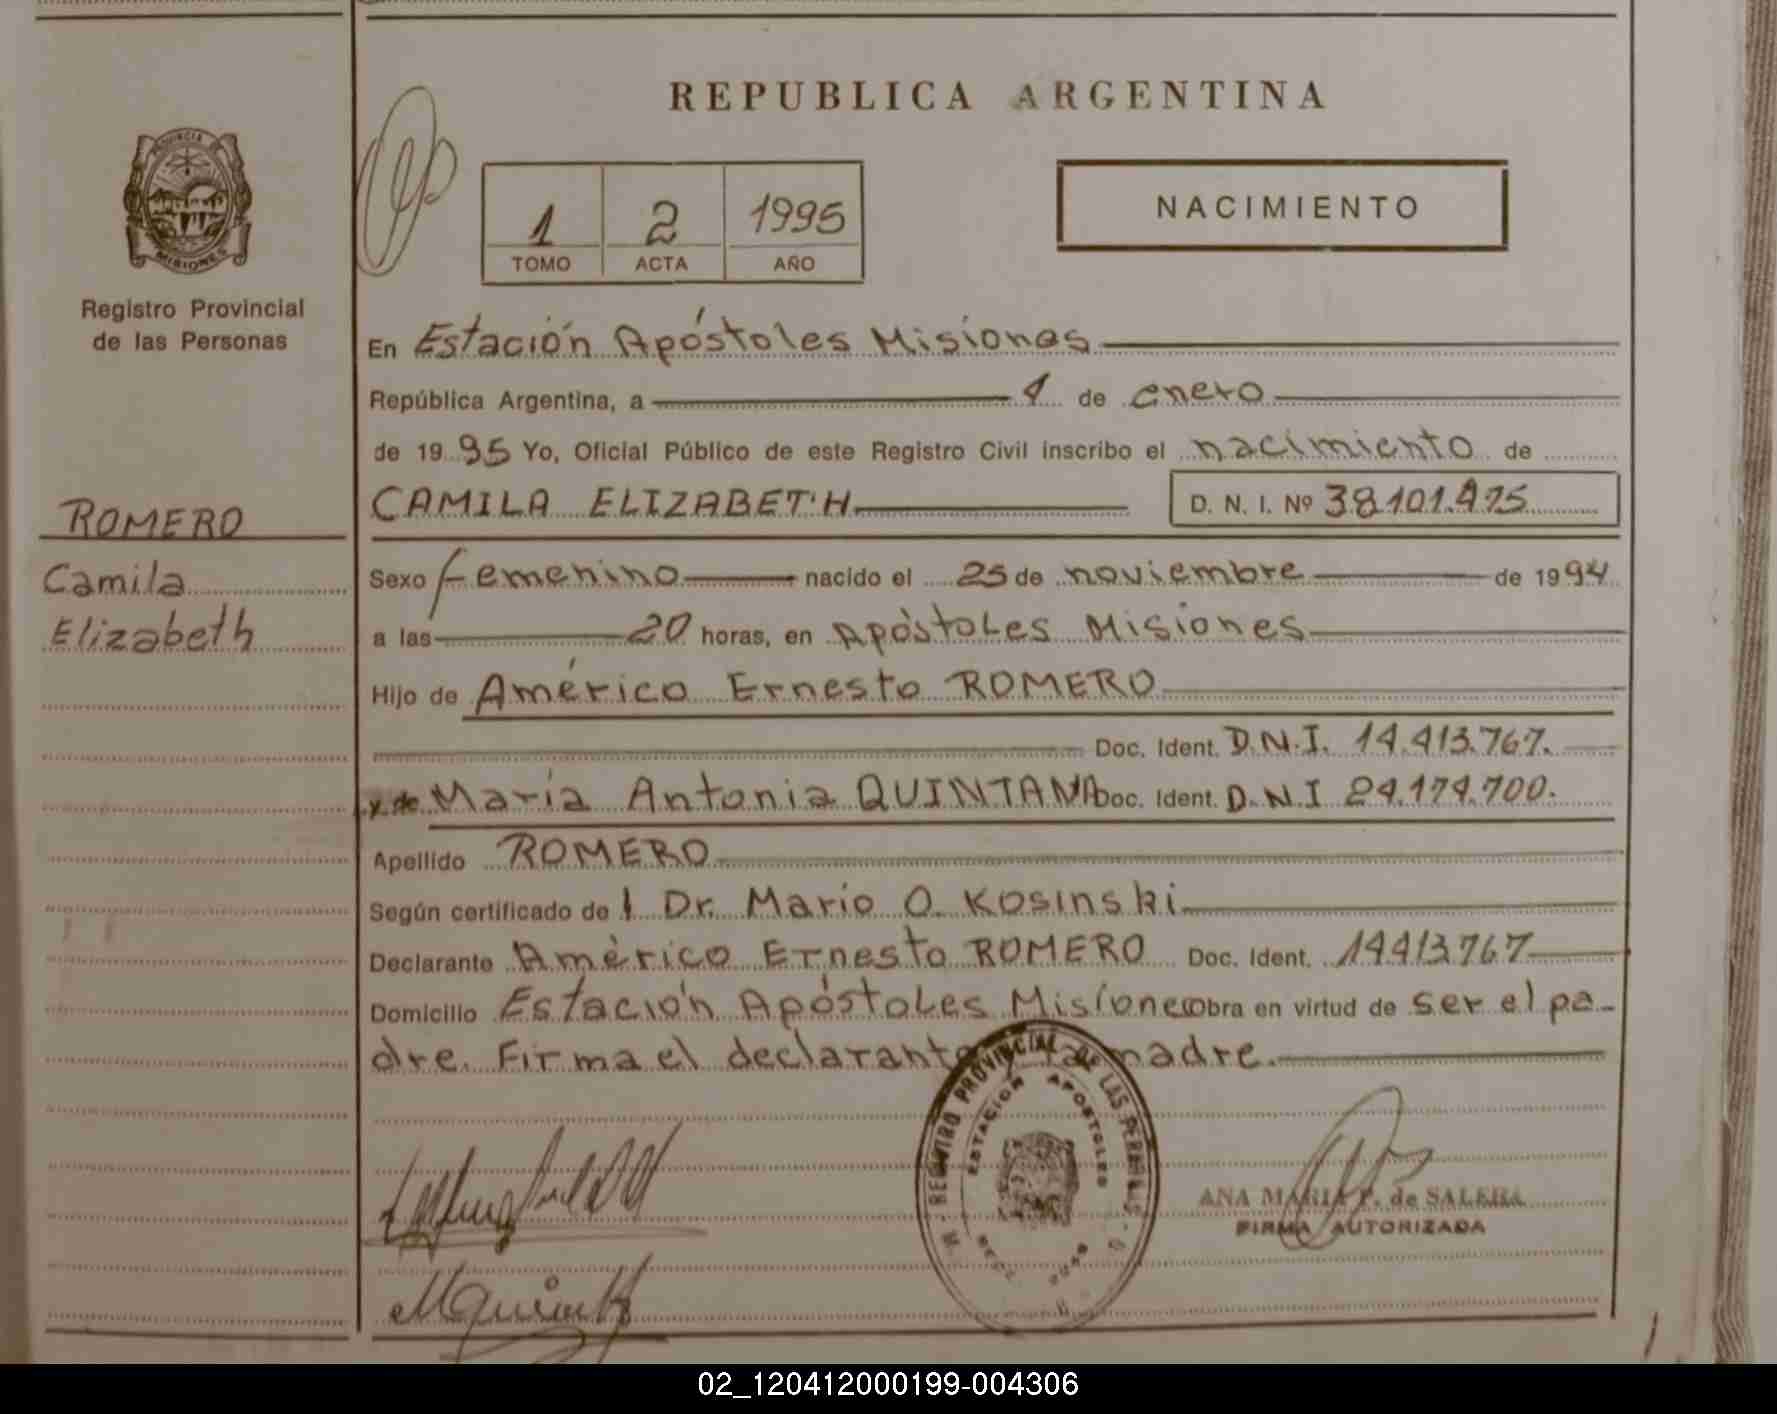 REPUBLICA ARGENTINA
PROVINCIA
MISIONES
Registro Provincial
de las Personas
1 2 1995
TOMO ACTA AÑO
NACIMIENTO
En Estación Apóstoles Misiones
República Argentina, a 4 de enero
de 1995 Yo, Oficial Público de este Registro Civil inscribo el nacimiento de
ROMERO
Camila
Elizabeth
CAMILA ELIZABETH D. N. I. Nº 38.101.975
Sexo femenino nacido el 25 de noviembre de 1994
a las 20 horas, en Apóstoles Misiones
Hijo de Américo Ernesto ROMERO
Doc. Ident. D.N.I. 14.413.767.
y de María Antonia QUINTANA Doc. Ident. D.N.I 24.174.700.
Apellido ROMERO
Según certificado de Dr. Mario O. Kosinski
Declarante Américo Ernesto ROMERO Doc. Ident. 14413767
Domicilio Estación Apóstoles Misiones obra en virtud de ser el pa-
dre. Firma el declarante y la madre.
REGISTRO PROVINCIAL DE LAS PERSONAS
ESTACION APOSTOLES
ANA MARIA P. de
FIRMA AUTORIZADA
02_120412000199-004306